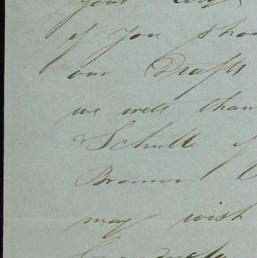 your
if you shou
our Drafts
we will than
Schulte
Bremen
may wish